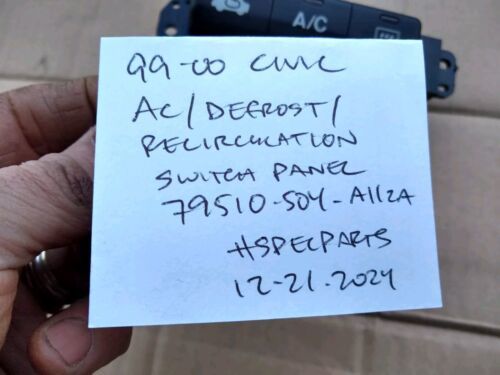 A/C
99-00 CIVIC
AC/DEFROST/
RECIRCULATION
SWITCH PANEL
79510-S04-A11ZA
HSPECPARTS
12-21.2024